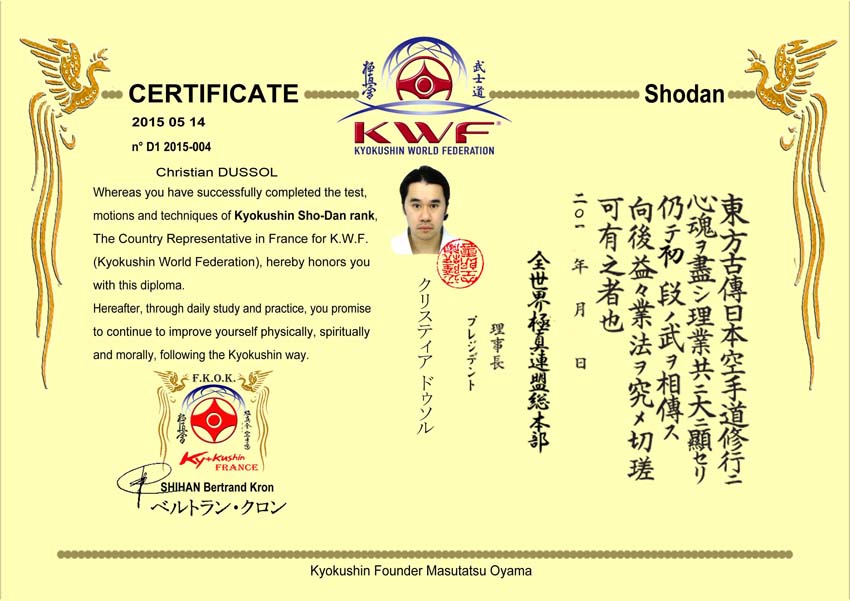 CERTIFICATE
Shodan
極真会
武士道
KWF
KYOKUSHIN WORLD FEDERATION
2015 05 14
n° D1 2015-004
Christian DUSSOL
Whereas you have successfully completed the test,
motions and techniques of Kyokushin Sho-Dan rank,
The Country Representative in France for K.W.F.
(Kyokushin World Federation), hereby honors you
with this diploma.
Hereafter, through daily study and practice, you promise
to continue to improve yourself physically, spiritually
and morally, following the Kyokushin way.
東方古傳日本空手道修行ニ
心魂ヲ盡シ理業共ニ大ニ顯セリ
仍テ初段ノ武ヲ相傳ス
向後益々業法ヲ究メ切瑳
可有之者也
二〇一 年 月 日
全世界極真連盟総本部
理事長
プレジデント
クリスティア ドゥソル
F.K.O.K.
極真会
Kyokushin
FRANCE
SHIHAN Bertrand Kron
ベルトラン・クロン
Kyokushin Founder Masutatsu Oyama